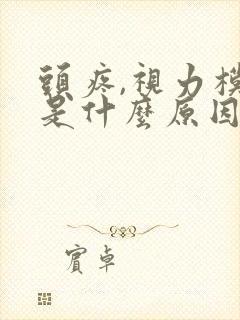 頭疼,視力
是什麼原因
賓卓